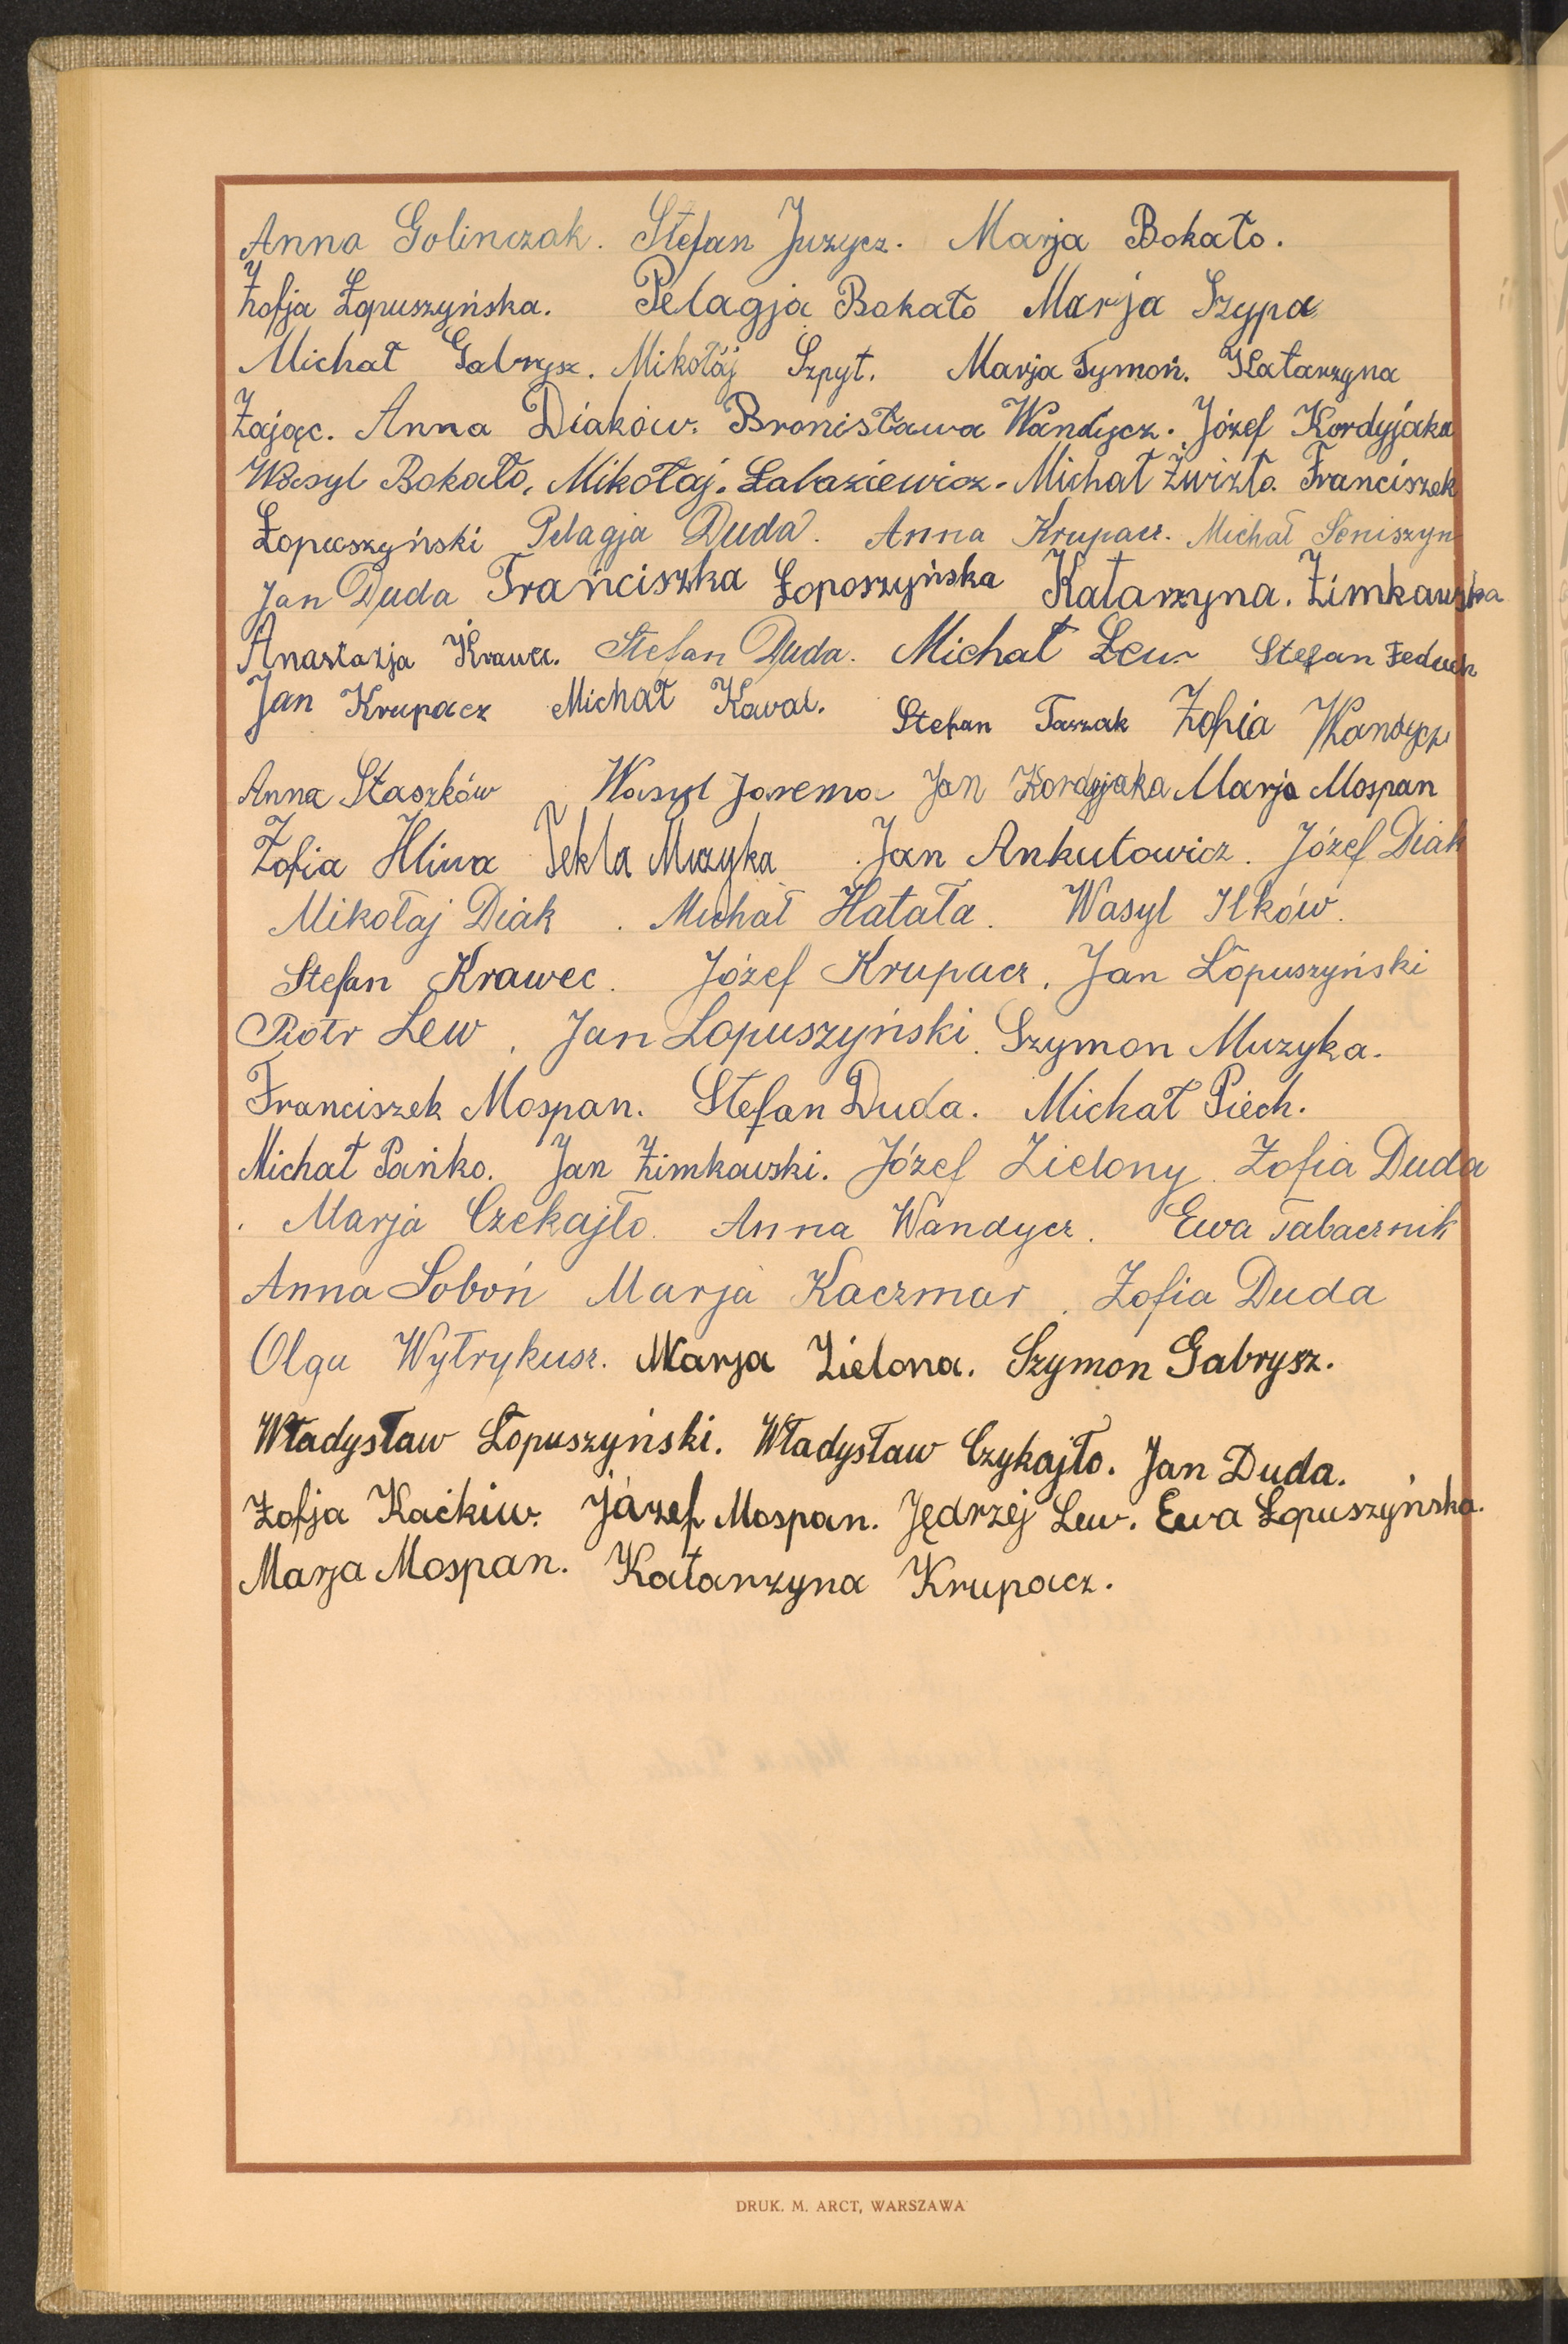 Anna Golinczak. Stefan Juzycz. Marja Bokało.
Zofja Łopuszyńska. Pelagja Bokało Marja Szypa
Michał Gabrysz. Mikołaj Szpyt. Marja Tymoń. Katarzyna
Zając. Anna Diaków. Bronisława Wandycz. Józef Kordyjaka
Wasyl Bokało, Mikołaj. Łabaziewicz. Michał Żwizło. Franciszek
Łopuszyński Pelagja Duda. Anna Krupacz. Michał Seniszyn
Jan Duda Franciszka Łoposzyńska Katarzyna. Zimkawska
Anastazja Krawec. Stefan Duda. Michał Lew Stefan Feduch
Jan Krupacz Michał Kaval. Stefan Taszak Zofia Wandycz
Anna Staszków Wasyl Jarema Jan Kordyjaka Marja Mospan
Zofia Hliwa Tekla Muzyka Jan Ankutowicz. Józef Diak
Mikołaj Diak. Michał Hatała. Wasyl Ilków.
Stefan Krawec. Józef Krupacz, Jan Łopuszyński
Piotr Lew, Jan Łopuszyński. Szymon Muzyka.
Franciszek Mospan. Stefan Duda. Michał Piech.
Michał Pańko. Jan Zimkawski. Józef Zielony. Zofia Duda
. Marja Czekajło. Anna Wandycz. Ewa Tabacznik
Anna Soboń Marja Kaczmar. Zofia Duda
Olga Wytrykusz. Marja Zielona. Szymon Gabrysz.
Władysław Łopuszyński. Władysław Czykajło. Jan Duda.
Zofja Kaćkiw. Józef Mospan. Jędrzej Lew. Ewa Łopuszyńska.
Marja Mospan. Katarzyna Krupacz.
DRUK. M. ARCT, WARSZAWA